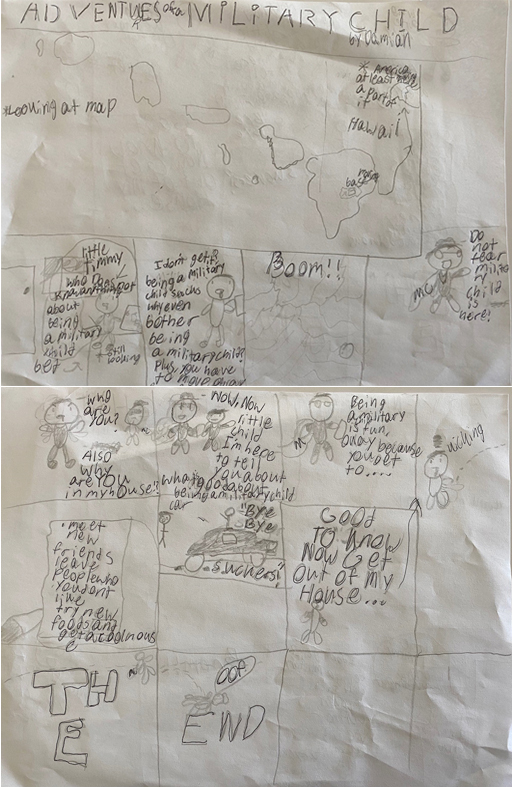 ADVENTURES of a MILITARY CHILD
by Damian
* America
at least
a part of
it
*Looking at map
Hawaii
base
little
Timmy
who
about
being
a military
child
bed
*still
looking
I don't get it
being a military
child sucks
why even
bother
being
a military child?
Plus you have
to move away
Boom!!
Do
not
fear
milita
ry
child
is
here!
MC
who
are
you?
Also
why
are you
in my house?
Now, Now
little
child
I'm here
to tell
you about
what is good about
being a military child
Being
a military
is fun,
okay because
you get
to....
M
kicking
• meet
new
friends
leave
people who
you dont
like
try new
foods and
get a cool house
car
"Bye
Bye
suckers!"
Good
To know
Now Get
Out of my
House...
THE
OOF
END